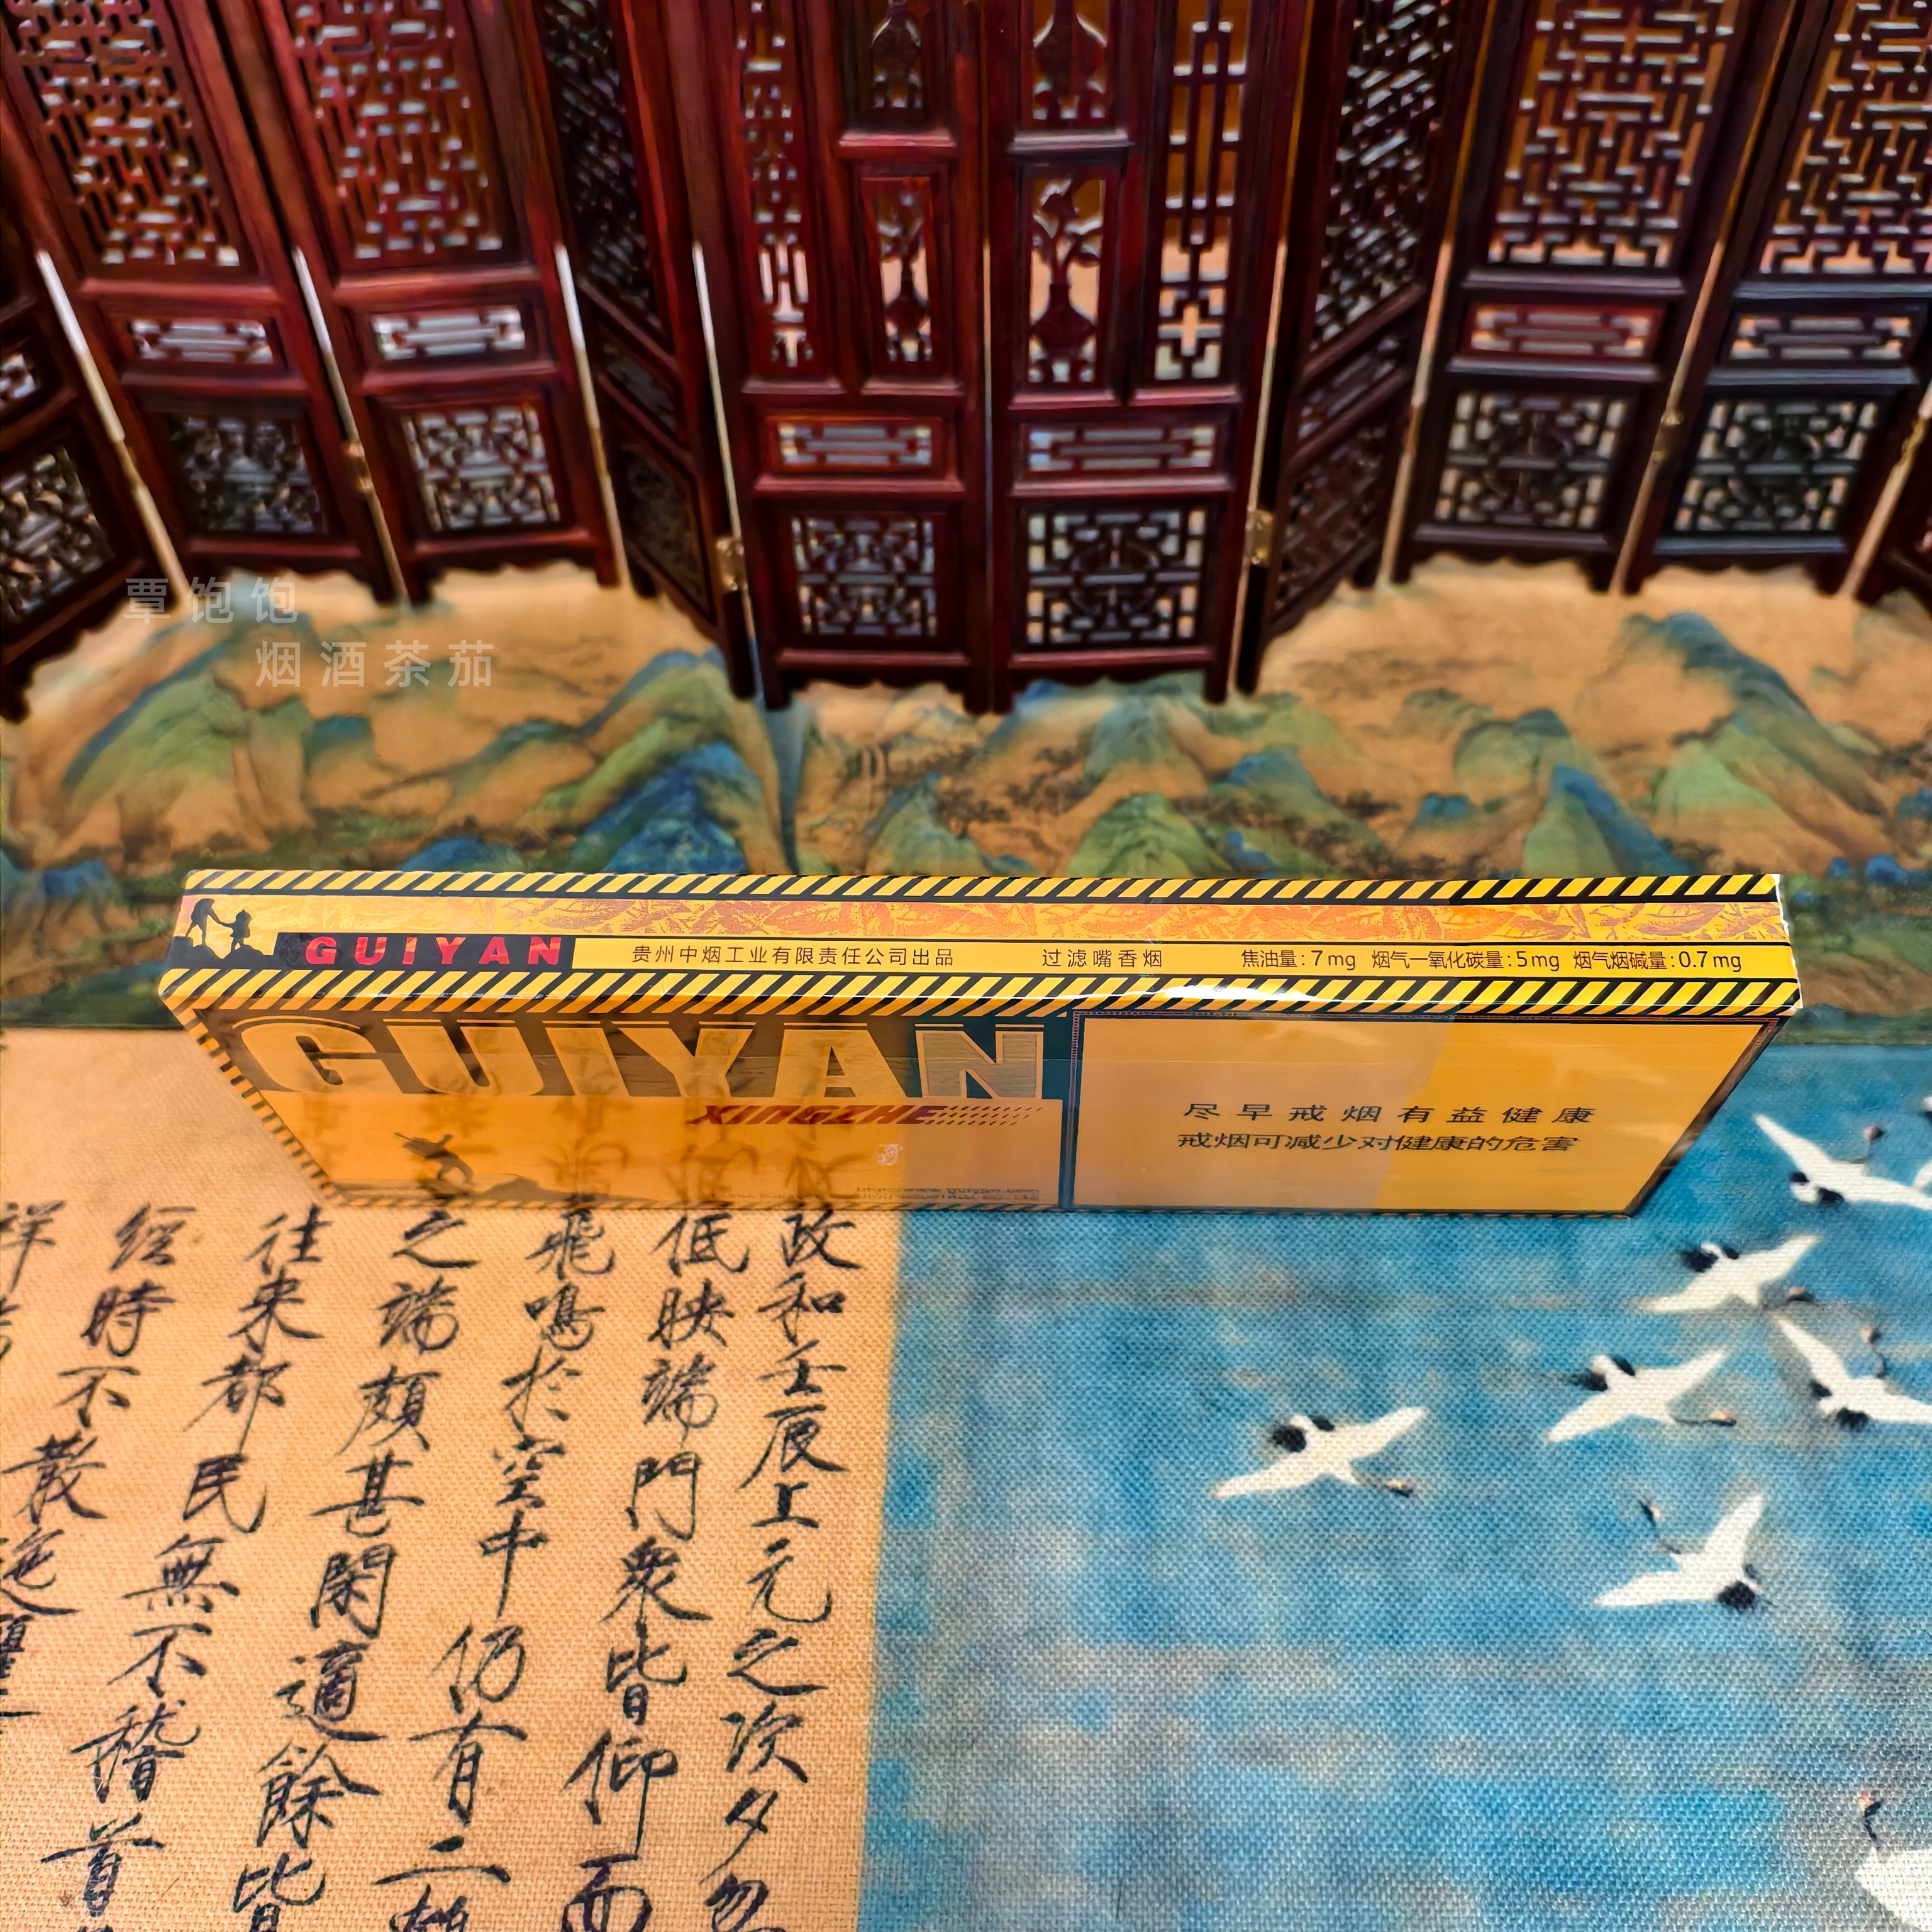 覃饱饱
烟酒茶茄
GUIYAN
贵州中烟工业有限责任公司出品 过滤嘴香烟 焦油量:7mg 烟气一氧化碳量:5mg 烟气烟碱量:0.7mg
GUIYAN
XINGZHE
尽早戒烟有益健康
戒烟可减少对健康的危害
政和壬辰上元之次夕忽
低映端門衆皆仰而
飛鳴於空中仍有二
之端頗甚閑適餘皆
往来都民無不稽首
經時不散迤
祥